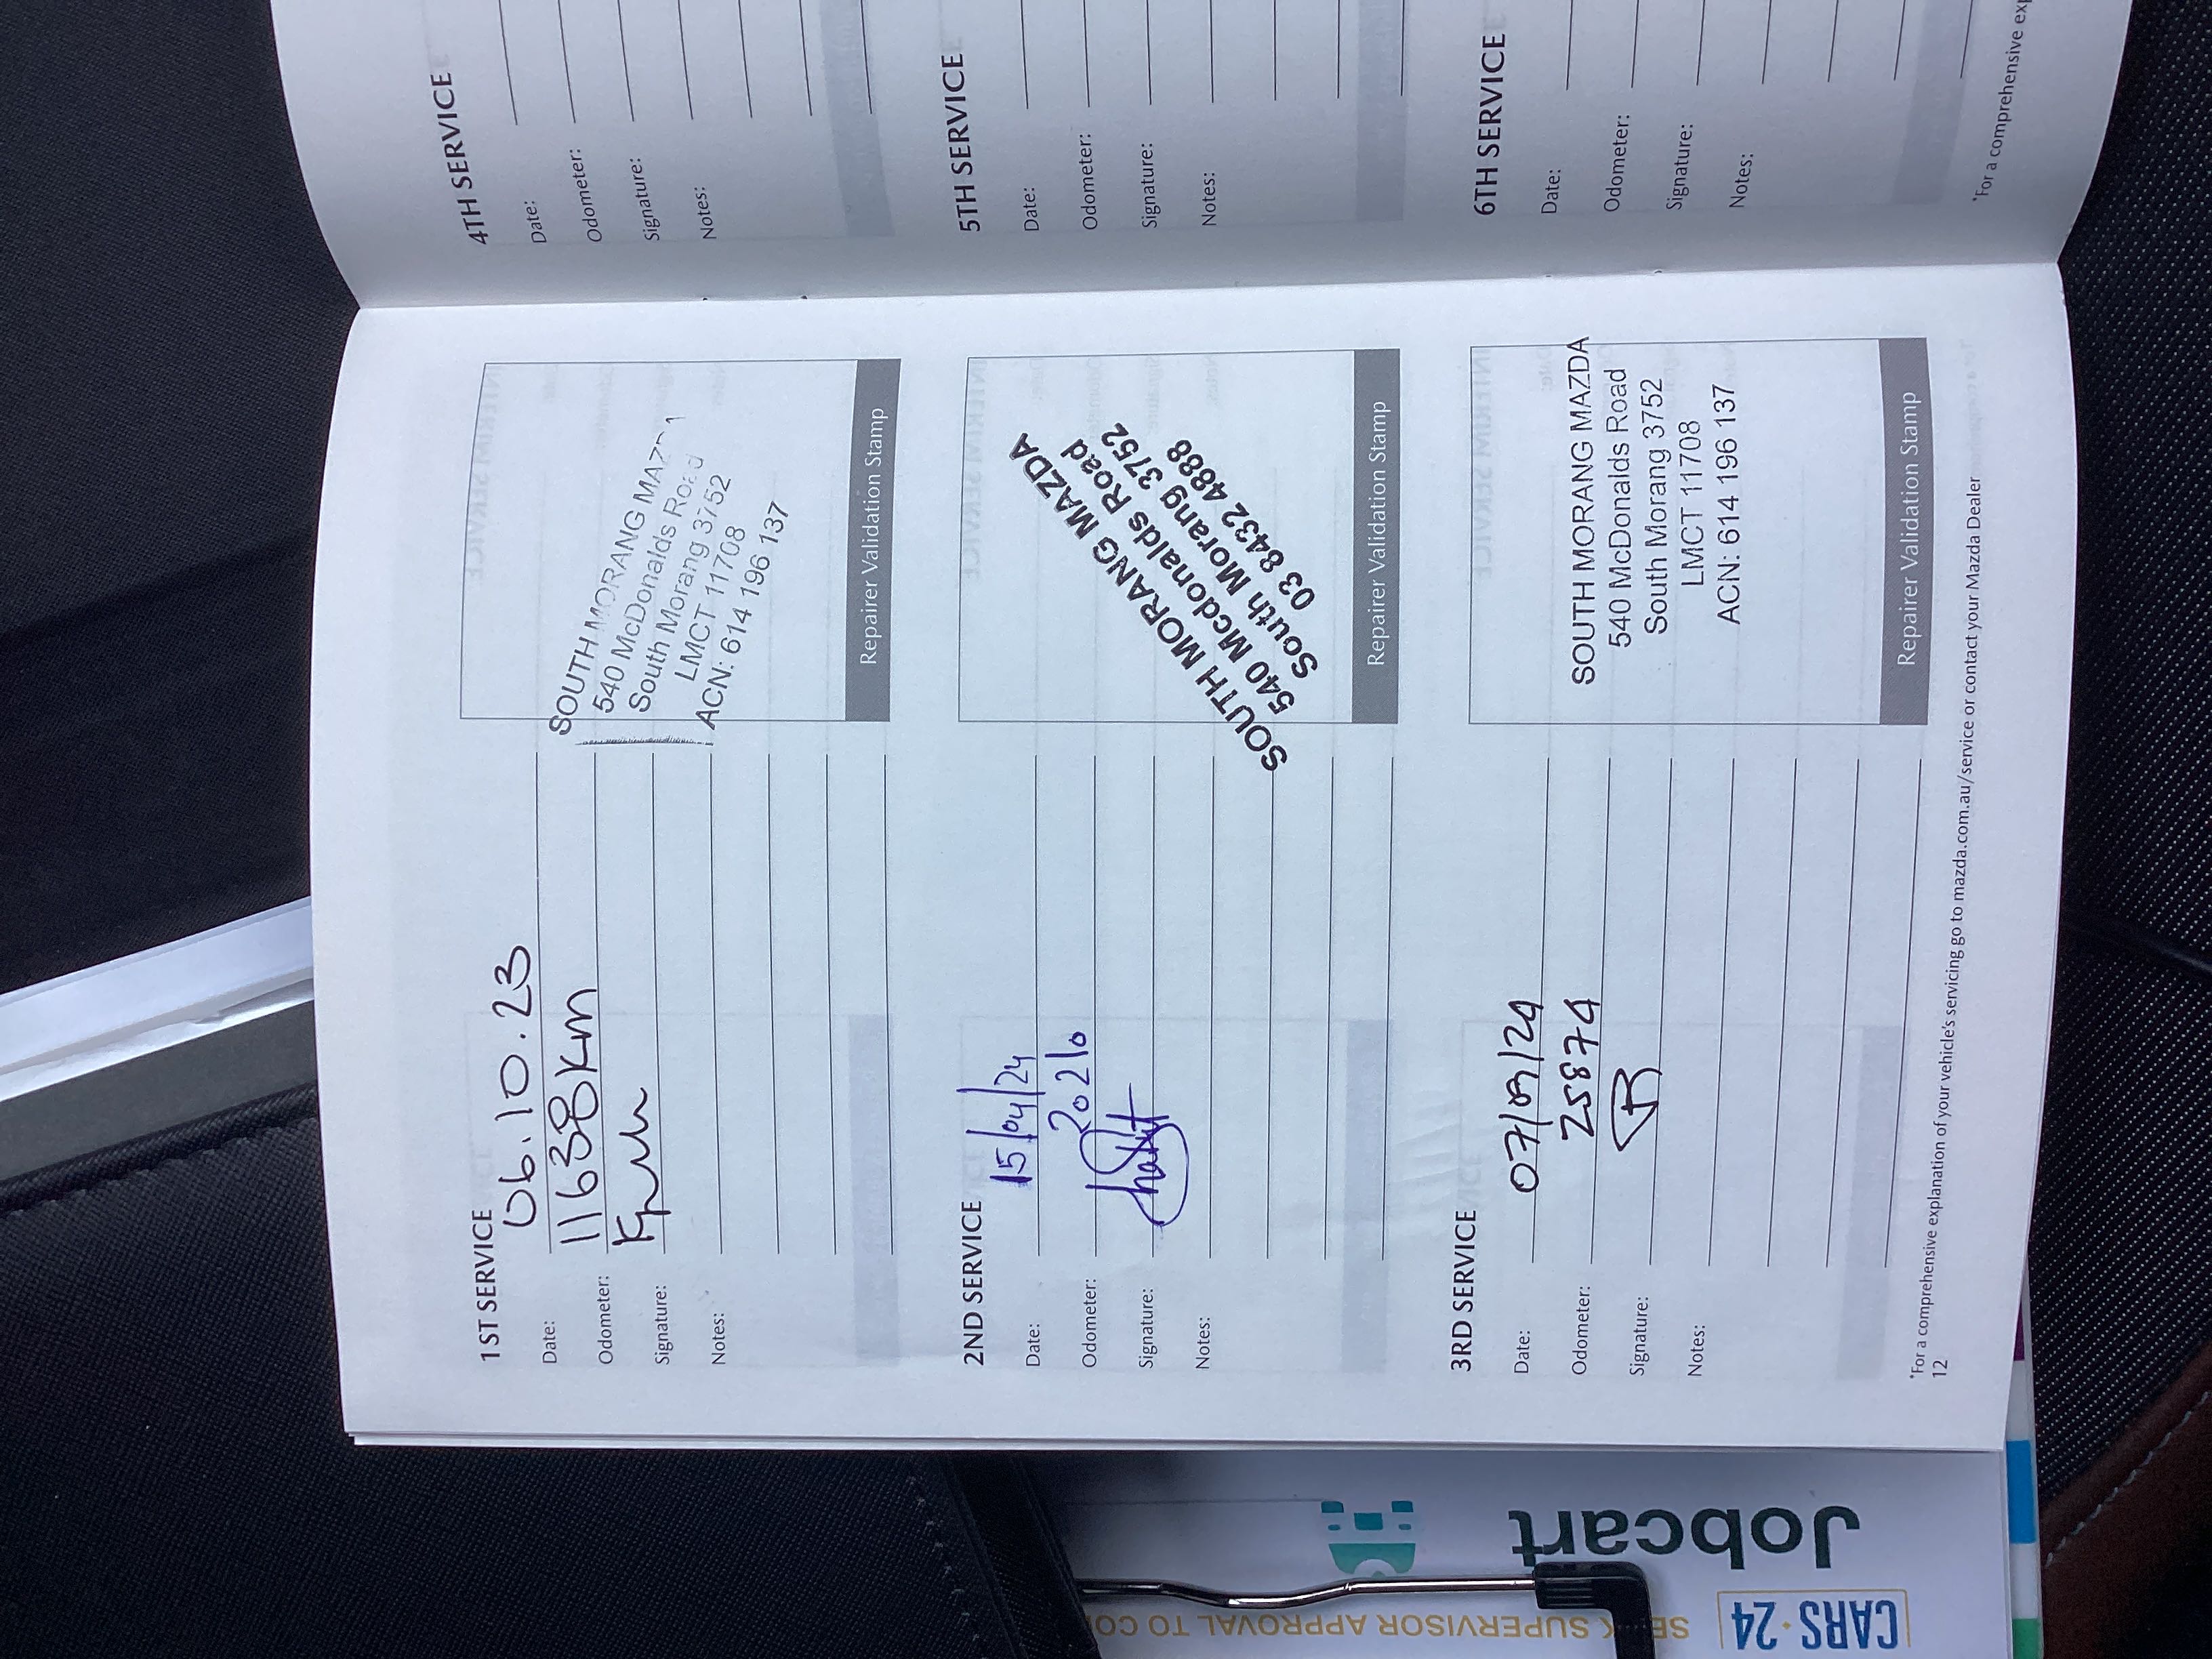 1ST SERVICE
Date: 06.10.23
Odometer: 11638km
Signature:
Notes:
SOUTH MORANG MAZDA
540 McDonalds Road
South Morang 3752
LMCT 11708
ACN: 614 196 137
Repairer Validation Stamp
2ND SERVICE
Date: 15/04/24
Odometer: 20210
Signature:
Notes:
SOUTH MORANG MAZDA
540 Mcdonalds Road
South Morang 3752
03 8432 4888
Repairer Validation Stamp
3RD SERVICE
Date: 07/09/24
Odometer: 25874
Signature:
Notes:
SOUTH MORANG MAZDA
540 McDonalds Road
South Morang 3752
LMCT 11708
ACN: 614 196 137
Repairer Validation Stamp
*For a comprehensive explanation of your vehicle's servicing go to mazda.com.au/service or contact your Mazda Dealer
12
4TH SERVICE
Date:
Odometer:
Signature:
Notes:
5TH SERVICE
Date:
Odometer:
Signature:
Notes:
6TH SERVICE
Date:
Odometer:
Signature:
Notes:
*For a comprehensive
CARS24
Jobcart
SUPERVISOR APPROVAL TO